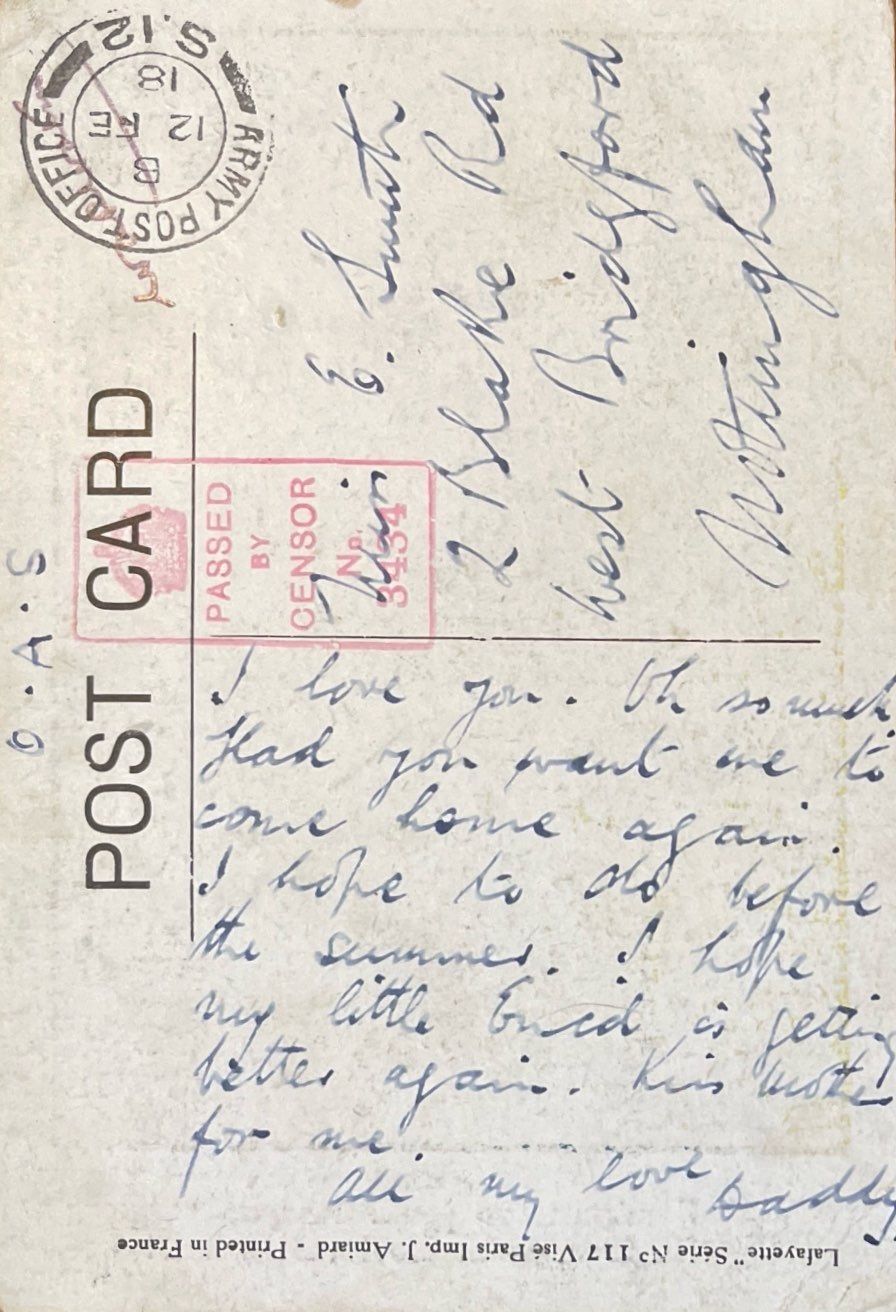 O.A.S
POST CARD
ARMY POST OFFICE
B
12 FE
18
S.12
PASSED
BY
CENSOR
No.
3434
Miss E. Smith
2 Blake Rd
West Bridgford
Nottingham
I love you. Oh so much.
Glad you want me to
come home again.
I hope to do before
the summer. I hope
my little Enid is getting
better again. Kiss Mother
for me.
All my love Daddy
Lafayette" Série No 117 Visé Paris Imp. J. Amiard - Printed in France